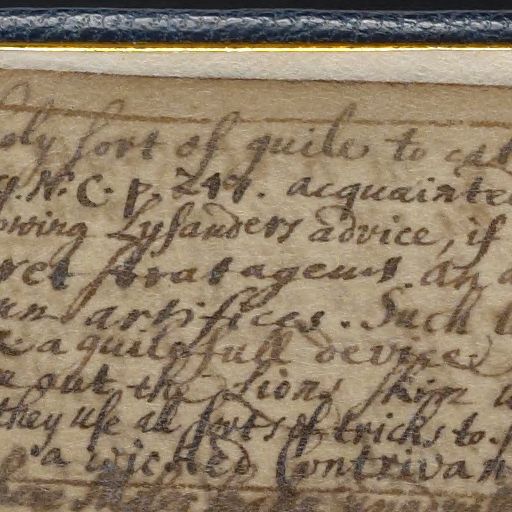 oly sort of guile to cat
N. C. p. 247. acquainted
owing Lysanders advice, if
ret stratagems an a
un artifices. Such
a guilefull device
out the Lions skin
they use al sorts of tricks to
a wicked Contrivan